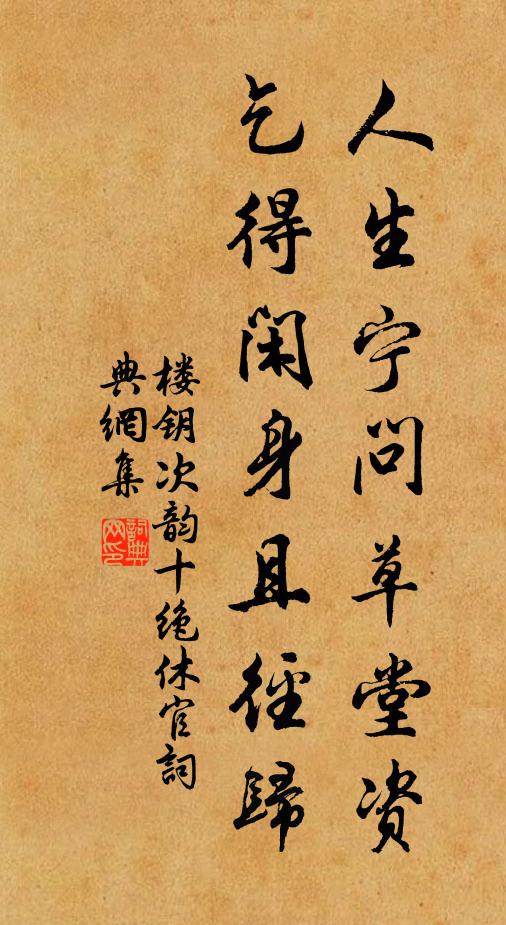 人生宁问草堂资
乞得闲身且径歸
楼钥次韵十绝休官詞
典網集
詞典網印